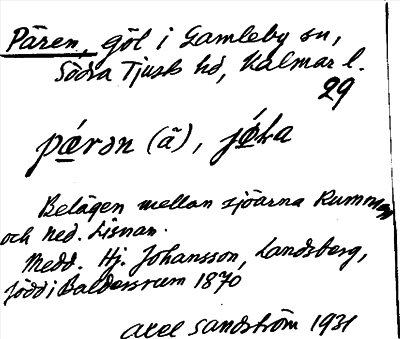 Pären, göl i Gamleby sn,
Södra Tjusts hd, Kalmar l.
29
pǽrən (ã),
Belägen mellan sjöarna Rummen
och ned. Lisnan.
Medd. Hj. Johansson, Landsberg,
född i Baldersrum 1870
Axel Sandström 1931